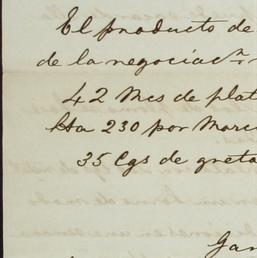 El producto de
de la negociacn.
42 Mcs de plat
lta 230 por Marc
35 Cgs de greta